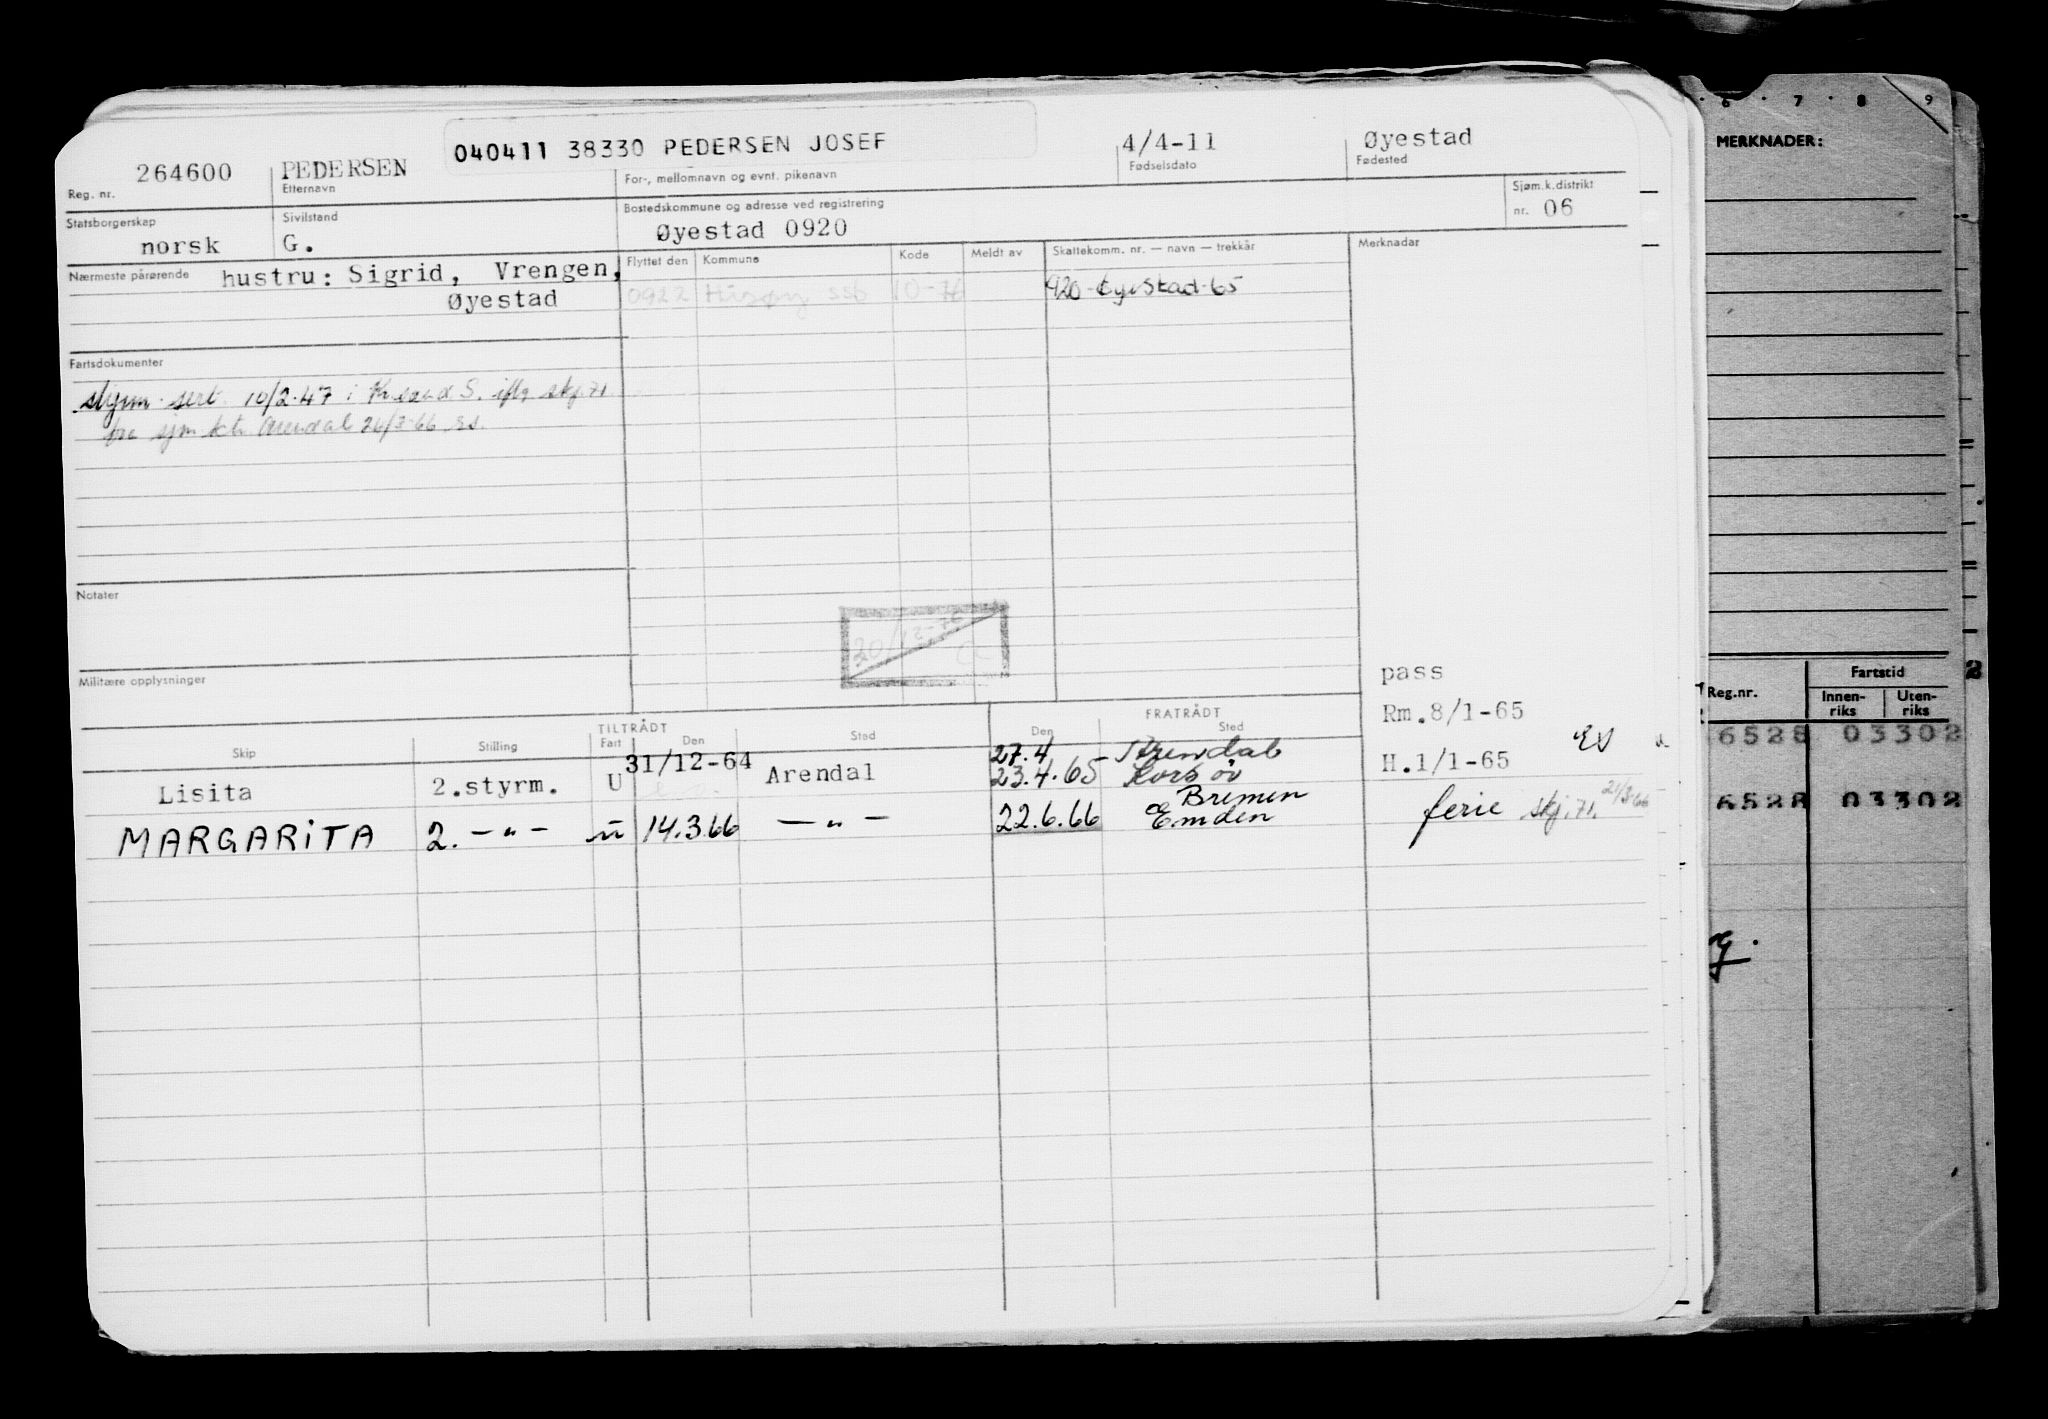 040411 38330 PEDERSEN JOSEF
264600 PEDERSEN 4/4-11 Øyestad
Reg. nr. Etternavn For-, mellomnavn og evnt. pikenavn Fødselsdato Fødested
Statsborgerskap Sivilstand Bostedskommune og adresse ved registrering Sjøm.k.distrikt
norsk G. Øyestad 0920 nr. 06
Nærmeste pårørende hustru: Sigrid, Vrengen, Flyttet den Kommune Kode Meldt av Skattekomm. nr. — navn — trekkår Merknader
Øyestad 0922 Hisøy ssb 10-76 920-Øyestad-65
Fartsdokumenter
sert. 10/2.47 i Kr.sand S. iflg skj.71
fra sjm ktr. Arendal 24/3-66 ES.
Notater
20/12-76
Militære opplysninger
pass
Rm.8/1-65
TILTRÅDT FRATRÅDT
Skip Stilling Fart Den Sted Den Sted
27.4 Arendal
Lisita 2.styrm. U 31/12-64 Arendal 23.4.65 Korsör H.1/1-65 ES
Bremen
MARGARITA 2. —„— u 14.3.66 —„— 22.6.66 Emden ferie skj.71. 24/3-66
6 7 8 9
MERKNADER:
Reg.nr. Fartstid
Innen-riks Uten-riks
6528 03302
6528 03302